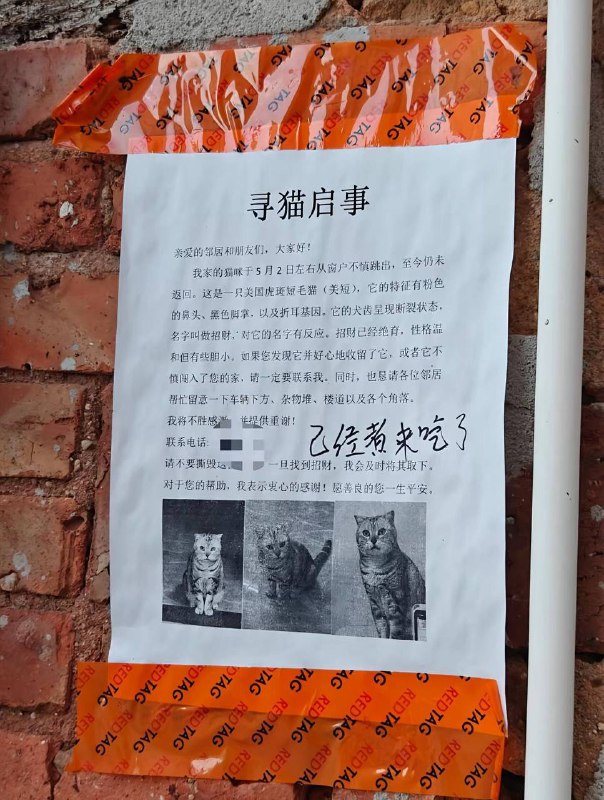 RED TAG RED TAG RED TAG RED TAG RED TAG
寻猫启事
亲爱的邻居和朋友们，大家好！
我家的猫咪于5月2日左右从窗户不慎跳出，至今仍未
返回。这是一只美国虎斑短毛猫（美短），它的特征有粉色
的鼻头、黑色脚掌，以及折耳基因。它的犬齿呈现断裂状态，
名字叫做招财，对它的名字有反应。招财已经绝育，性格温
和但有些胆小。如果您发现它并好心地收留了它，或者它不
慎闯入了您的家，请一定要联系我。同时，也恳请各位邻居
帮忙留意一下车辆下方、杂物堆、楼道以及各个角落。
我将不胜感激，并提供重谢！
联系电话： 已经煮来吃了
请不要撕毁 一旦找到招财，我会及时将其取下。
对于您的帮助，我表示衷心的感谢！愿善良的您一生平安。
RED TAG RED TAG RED TAG RED TAG RED TAG